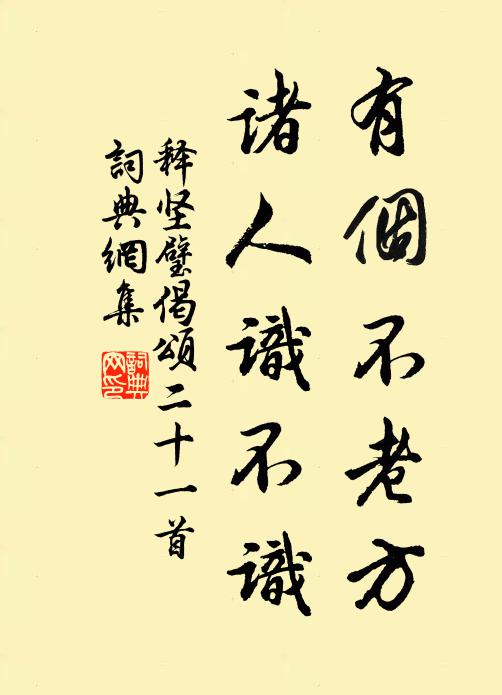 有個不老方
诸人識不識
释坚璧偈頌二十一首
詞典網集
詞典网印